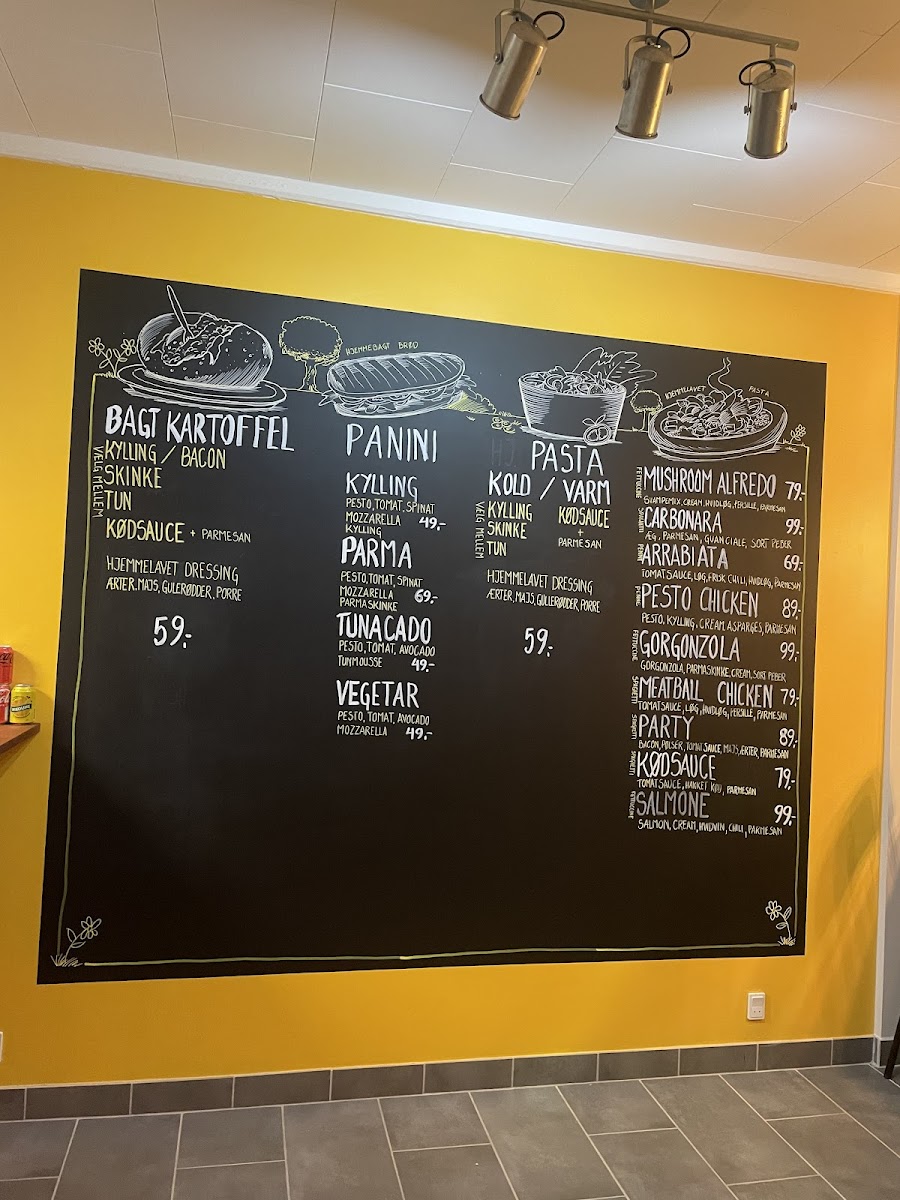 HJEMMEBAGT BRØD
HJEMMELAVET PASTA
BAGT KARTOFFEL
VÆLG MELLEM
KYLLING / BACON
SKINKE
TUN
KØDSAUCE + PARMESAN
HJEMMELAVET DRESSING
ÆRTER, MAJS, GULERØDDER, PORRE
59,-
PANINI
KYLLING
PESTO, TOMAT, SPINAT
MOZZARELLA 49,-
KYLLING
PARMA
PESTO, TOMAT, SPINAT
MOZZARELLA 69,-
PARMASKINKE
TUNACADO
PESTO, TOMAT, AVOCADO
TUNMOUSSE 49,-
VEGETAR
PESTO, TOMAT, AVOCADO
MOZZARELLA 49,-
PASTA
KOLD / VARM
VÆLG MELLEM
KYLLING
SKINKE
TUN
KØDSAUCE
+
PARMESAN
HJEMMELAVET DRESSING
ÆRTER, MAJS, GULLERØDDER, PORRE
59,-
FETTUCINE
MUSHROOM ALFREDO 79,-
SVAMPEMIX, CREAM, HVIDLØG, PERSILLE, PARMESAN
SPAGHETTI
CARBONARA 99,-
ÆG, PARMESAN, GUANCIALE, SORT PEBER
PENNE
ARRABIATA 69,-
TOMATSAUCE, LØG, FRISK CHILI, HVIDLØG, PARMESAN
PENNE
PESTO CHICKEN 89,-
PESTO, KYLLING, CREAM, ASPARGES, PARMESAN
FETTUCINE
GORGONZOLA 99,-
GORGONZOLA, PARMASKINKE, CREAM, SORT PEBER
SPAGETTI
MEATBALL CHICKEN 79,-
TOMATSAUCE, LØG, HVIDLØG, PERSILLE, PARMESAN
SPAGETTI
PARTY 89,-
BACON, PØLSER, TOMATSAUCE, MAJS, ÆRTER, PARMESAN
SPAGETTI
KØDSAUCE 79,-
TOMATSAUCE, HAKKET KØD, PARMESAN
FETTUCINE
SALMONE 99,-
SALMON, CREAM, HVIDVIN, CHILI, PARMESAN